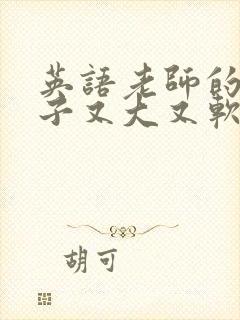 英語老師的
子又大又軟
胡可